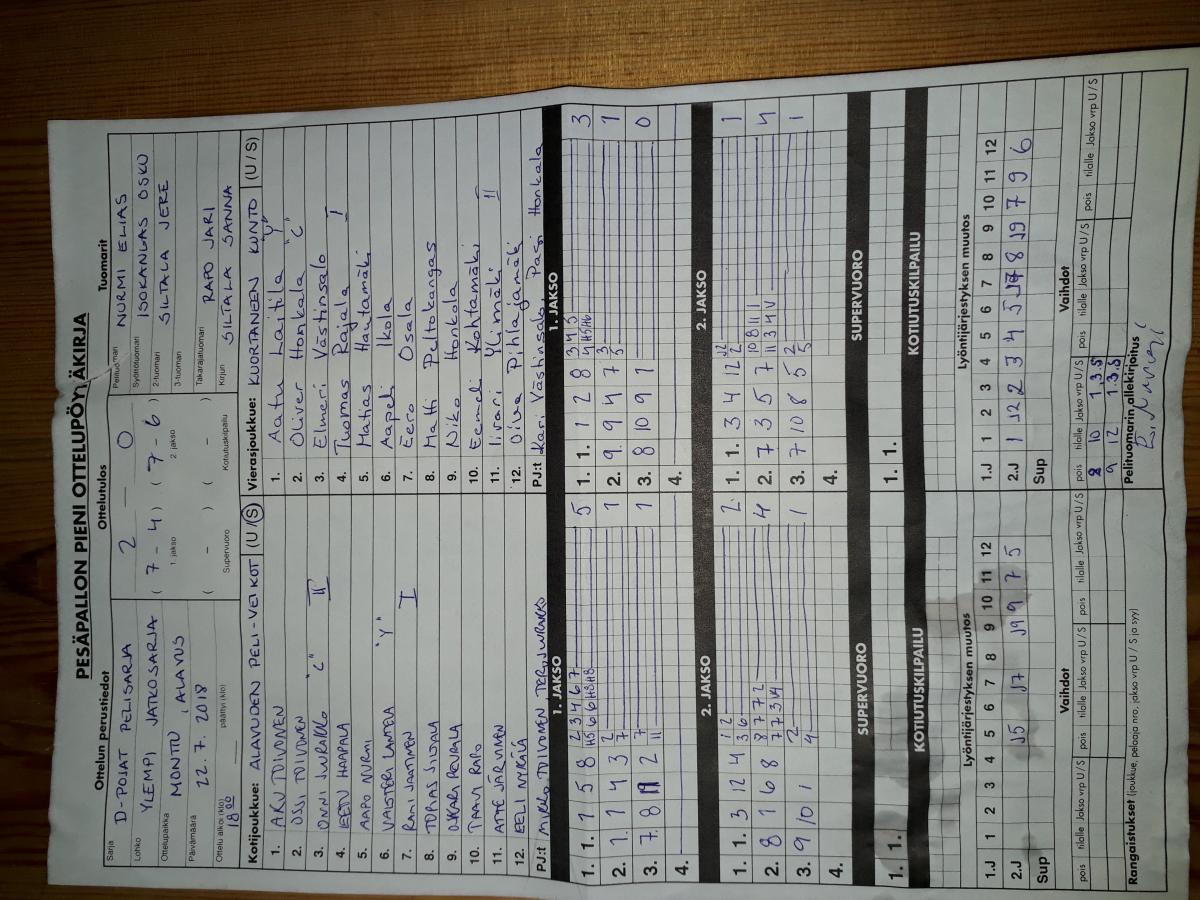 PESÄPALLON PIENI OTTELUPÖYTÄKIRJA
Ottelun perustiedot
Sarja D-POJAT PELISARJA
Lohko YLEMPI JATKOSARJA
Ottelupaikka MONTTU, ALAVUS
Päivämäärä 22.7.2018
Ottelu alkoi (klo) 18 00 päättyi (klo)
Ottelutulos
2 — 0
( 7 - 4 ) ( 7 - 6 )
1. jakso 2. jakso
( - ) ( - )
Supervuoro Kotiutuskilpailu
Tuomarit
Pelituomari NURMI ELIAS
Syöttötuomari ISOKANGAS OSKU
2-tuomari SILTALA JERE
3-tuomari
Takarajatuomari RAPO JARI
Kirjuri SILTALA SANNA
Kotijoukkue: ALAVUDEN PELI-VEIKOT (U/S)
1. ARU TOIVONEN
2. OSSI TOIVONEN
3. ONNI JUURAKKO "C"
4. EETU HAAPALA
5. AAPO NURMI
6. VALTTERI LAHTELA "Y"
7. RAMI JAATINEN I
8. TOMAS SILTALA
9. OSKARI PEURALA
10. TAAVI RAPO
11. ATTE JÄRVINEN
12. EELI NYRÄLÄ
PJ:t MIKKO TOIVONEN
Vierasjoukkue: KUORTANEEN KUNTO (U/S)
1. Aatu Laitila "Y"
2. Oliver Honkala "C"
3. Elmeri Västinsalo
4. Tuomas Rajala I
5. Matias Hautamäki
6. Aapeli Ikola
7. Eero Osala
8. Matti Peltokangas
9. Niko Honkola
10. Eemeli Kohtamäki
11. Iivari Ylimäki II
12. Oiva Pihlajamäki
PJ:t Kari Västinsalo, Pasi Honkala
1. JAKSO
1. 1. 1 5 8 2 3 4 6 7 5
2. 1. 1 4 3 2 1
3. 7 8 11 2 7 1
4.
1. JAKSO
1. 1. 1 2 8 3 4 5 3
2. 9. 9 4 7 3 1
3. 8 10 9 1 0
4.
2. JAKSO
1. 1. 3 12 4 1 2 2
2. 8 1 6 8 8 7 7 2 4
3. 9 10 1 2 1
4.
2. JAKSO
1. 1. 3 4 12 12 1
2. 7 3 5 7 10 8 11 4
3. 7 10 8 5 2 1
4.
SUPERVUORO
1. 1.
SUPERVUORO
1. 1.
KOTIUTUSKILPAILU
KOTIUTUSKILPAILU
Lyöntijärjestyksen muutos
1.J 1 2 3 4 5 6 7 8 9 10 11 12
2.J J5 J7 J9 9 7 5
Sup
Lyöntijärjestyksen muutos
1.J 1 2 3 4 5 6 7 8 9 10 11 12
2.J 1 J2 2 3 4 5 8 J9 7 9 6
Sup
Vaihdot
pois tilalle Jakso vrp U/S pois tilalle Jakso vrp U/S pois tilalle Jakso vrp U/S
Vaihdot
pois tilalle Jakso vrp U/S pois tilalle Jakso vrp U/S pois tilalle Jakso vrp U/S
8 10 1. 3. S
9 12 1. 3. S
Rangaistukset (joukkue, pelaaja nro, jakso vrp U/S ja syy)
Pelituomarin allekirjoitus